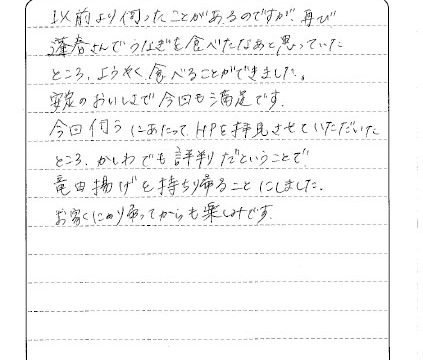 以前より伺ったことがあるのですが、再び
蓮春さんでうなぎを食べたいなあと思っていた
ところ、ようやく食べることができました。
安定のおいしさで今回も満足です。
今回伺うにあたって、HPを拝見させていただいた
ところ、かしわでも評判だということで
竜田揚げを持ち帰ることにしました。
お家に帰ってからも楽しみです。